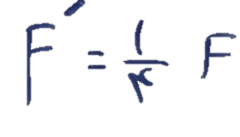 F' = 1/r F